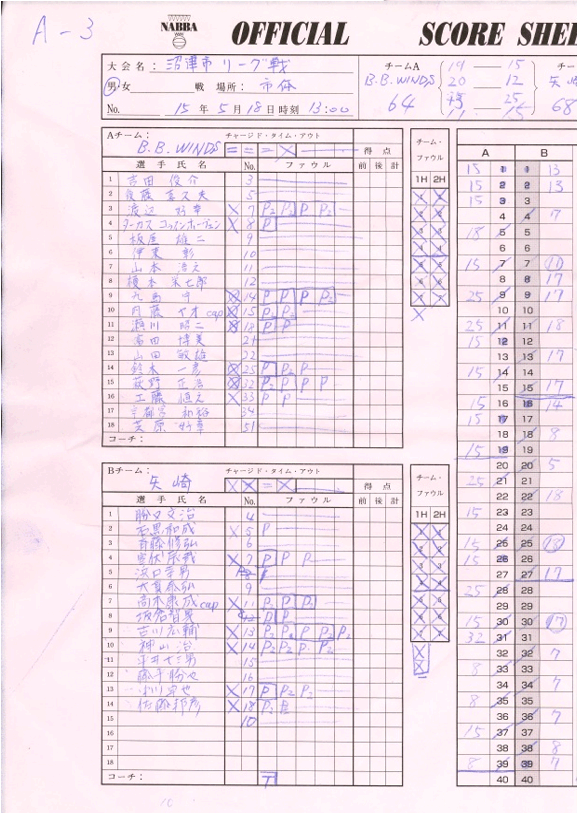 A-3
NABBA
OFFICIAL SCORE SHEE
大会名： 沼津市リーグ戦
男・女 戦 場所： 市体
No. 15年5月18日 時刻 13:00
チームA
B.B.WINDS
64
19 — 15
20 — 12
25
11 — 15
チー
矢崎
68
Aチーム：
B.B.WINDS
チャージド・タイム・アウト
得点
選手氏名 No. ファウル 前 後 計
チーム・ファウル
1H 2H
1 吉田 俊介 3
2 後藤 喜久夫 5
3 渡辺 好幸 7 P2 P2 P P2
4 8 P
5 板屋 雄二 9
6 伊東 彰 10
7 山本 浩之 11
8 榎本 栄七郎 12
9 14 P P P P2
10 内藤 イオ cap 15 P2 P2
11 瀬川 昭二 18 P P
12 富田 博美 21
13 山田 敏雄 22
14 鈴木 一彦 25 P P2 P
15 荻野 正浩 32 P2 P P P
16 工藤 恒之 33 P P
17 宇都宮 和裕 34
18 英原 好幸 51
コーチ：
Bチーム：
矢崎
チャージド・タイム・アウト
得点
選手氏名 No. ファウル 前 後 計
チーム・ファウル
1H 2H
1 勝口 文治 4
2 石黒 和成 5 P
3 斉藤 修弘 6
4 7 P P P
5 浜口 幸男 8 P
6 大賀 泰弘 9
7 高木 康成 cap 11 P2 P P2
8 坂倉 智晃 12 P P
9 古川 広輔 13 P2 P2 P P2 P2
10 神山 治 14 P2 P2 P P2
11 平井 七三男 15
12 16
13 小川 卓也 17 P P2 P2
14 佐藤 邦彦 18 P2
15 10
16
17
18
コーチ： T
A B
15 1 1 13
15 2 2 13
15 3 3
4 4 7
18 5 5
6 6
15 7 7 11
8 8 17
25 9 9 17
10 10
25 11 11 18
15 12 12
13 13 17
15 14 14
15 15 17
15 16 16 14
15 17 17
18 18 8
15 19 19
20 20 5
25 21 21
22 22 13
15 23 23
24 24
15 25 25 13
15 26 26
27 27 17
25 28 28
29 29
15 30 30 17
32 31 31
32 32 7
8 33 33
34 34 7
8 35 35
36 36 7
15 37 37
38 38 8
8 39 39 7
40 40